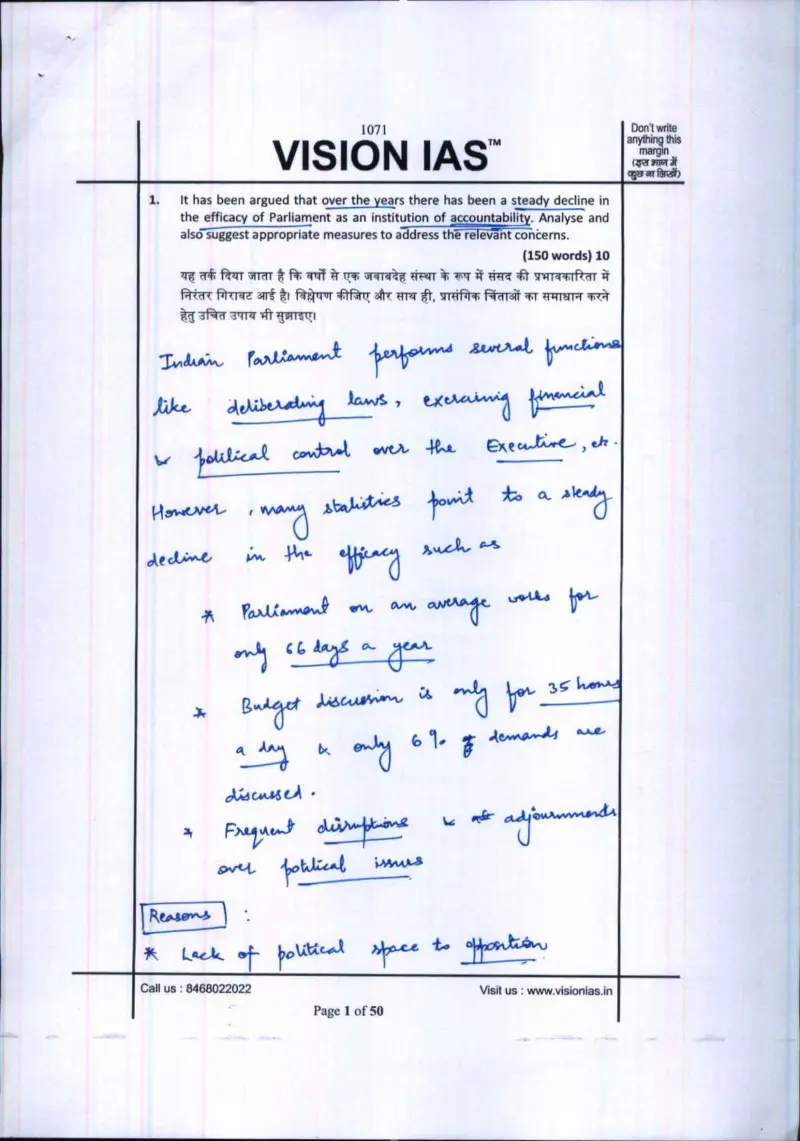 1071
VISION IAS™
Don't write
anything this
margin
(इस भाग में
कुछ ना लिखें)
1. It has been argued that over the years there has been a steady decline in
the efficacy of Parliament as an institution of accountability. Analyse and
also suggest appropriate measures to address the relevant concerns.
(150 words) 10
यह तर्क दिया जाता है कि वर्षों से एक जवाबदेह संस्था के रूप में संसद की प्रभावकारिता में
निरंतर गिरावट आई है। विश्लेषण कीजिए और साथ ही, प्रासंगिक चिंताओं का समाधान करने
हेतु उचित उपाय भी सुझाइए।
Indian Parliament performs several functions
like deliberating laws, exercising financial
& political control over the Executive, etc.
However, many statistics point to a steady
decline in the efficacy such as
* Parliament on an average works for
only 66 days a year
* Budget discussion is only for 35 hours
a day & only 6% of demands are
discussed.
* Frequent disruptions & adjournments
over political issues
Reasons :
* Lack of political space to opposition
Call us : 8468022022
Visit us : www.visionias.in
Page 1 of 50